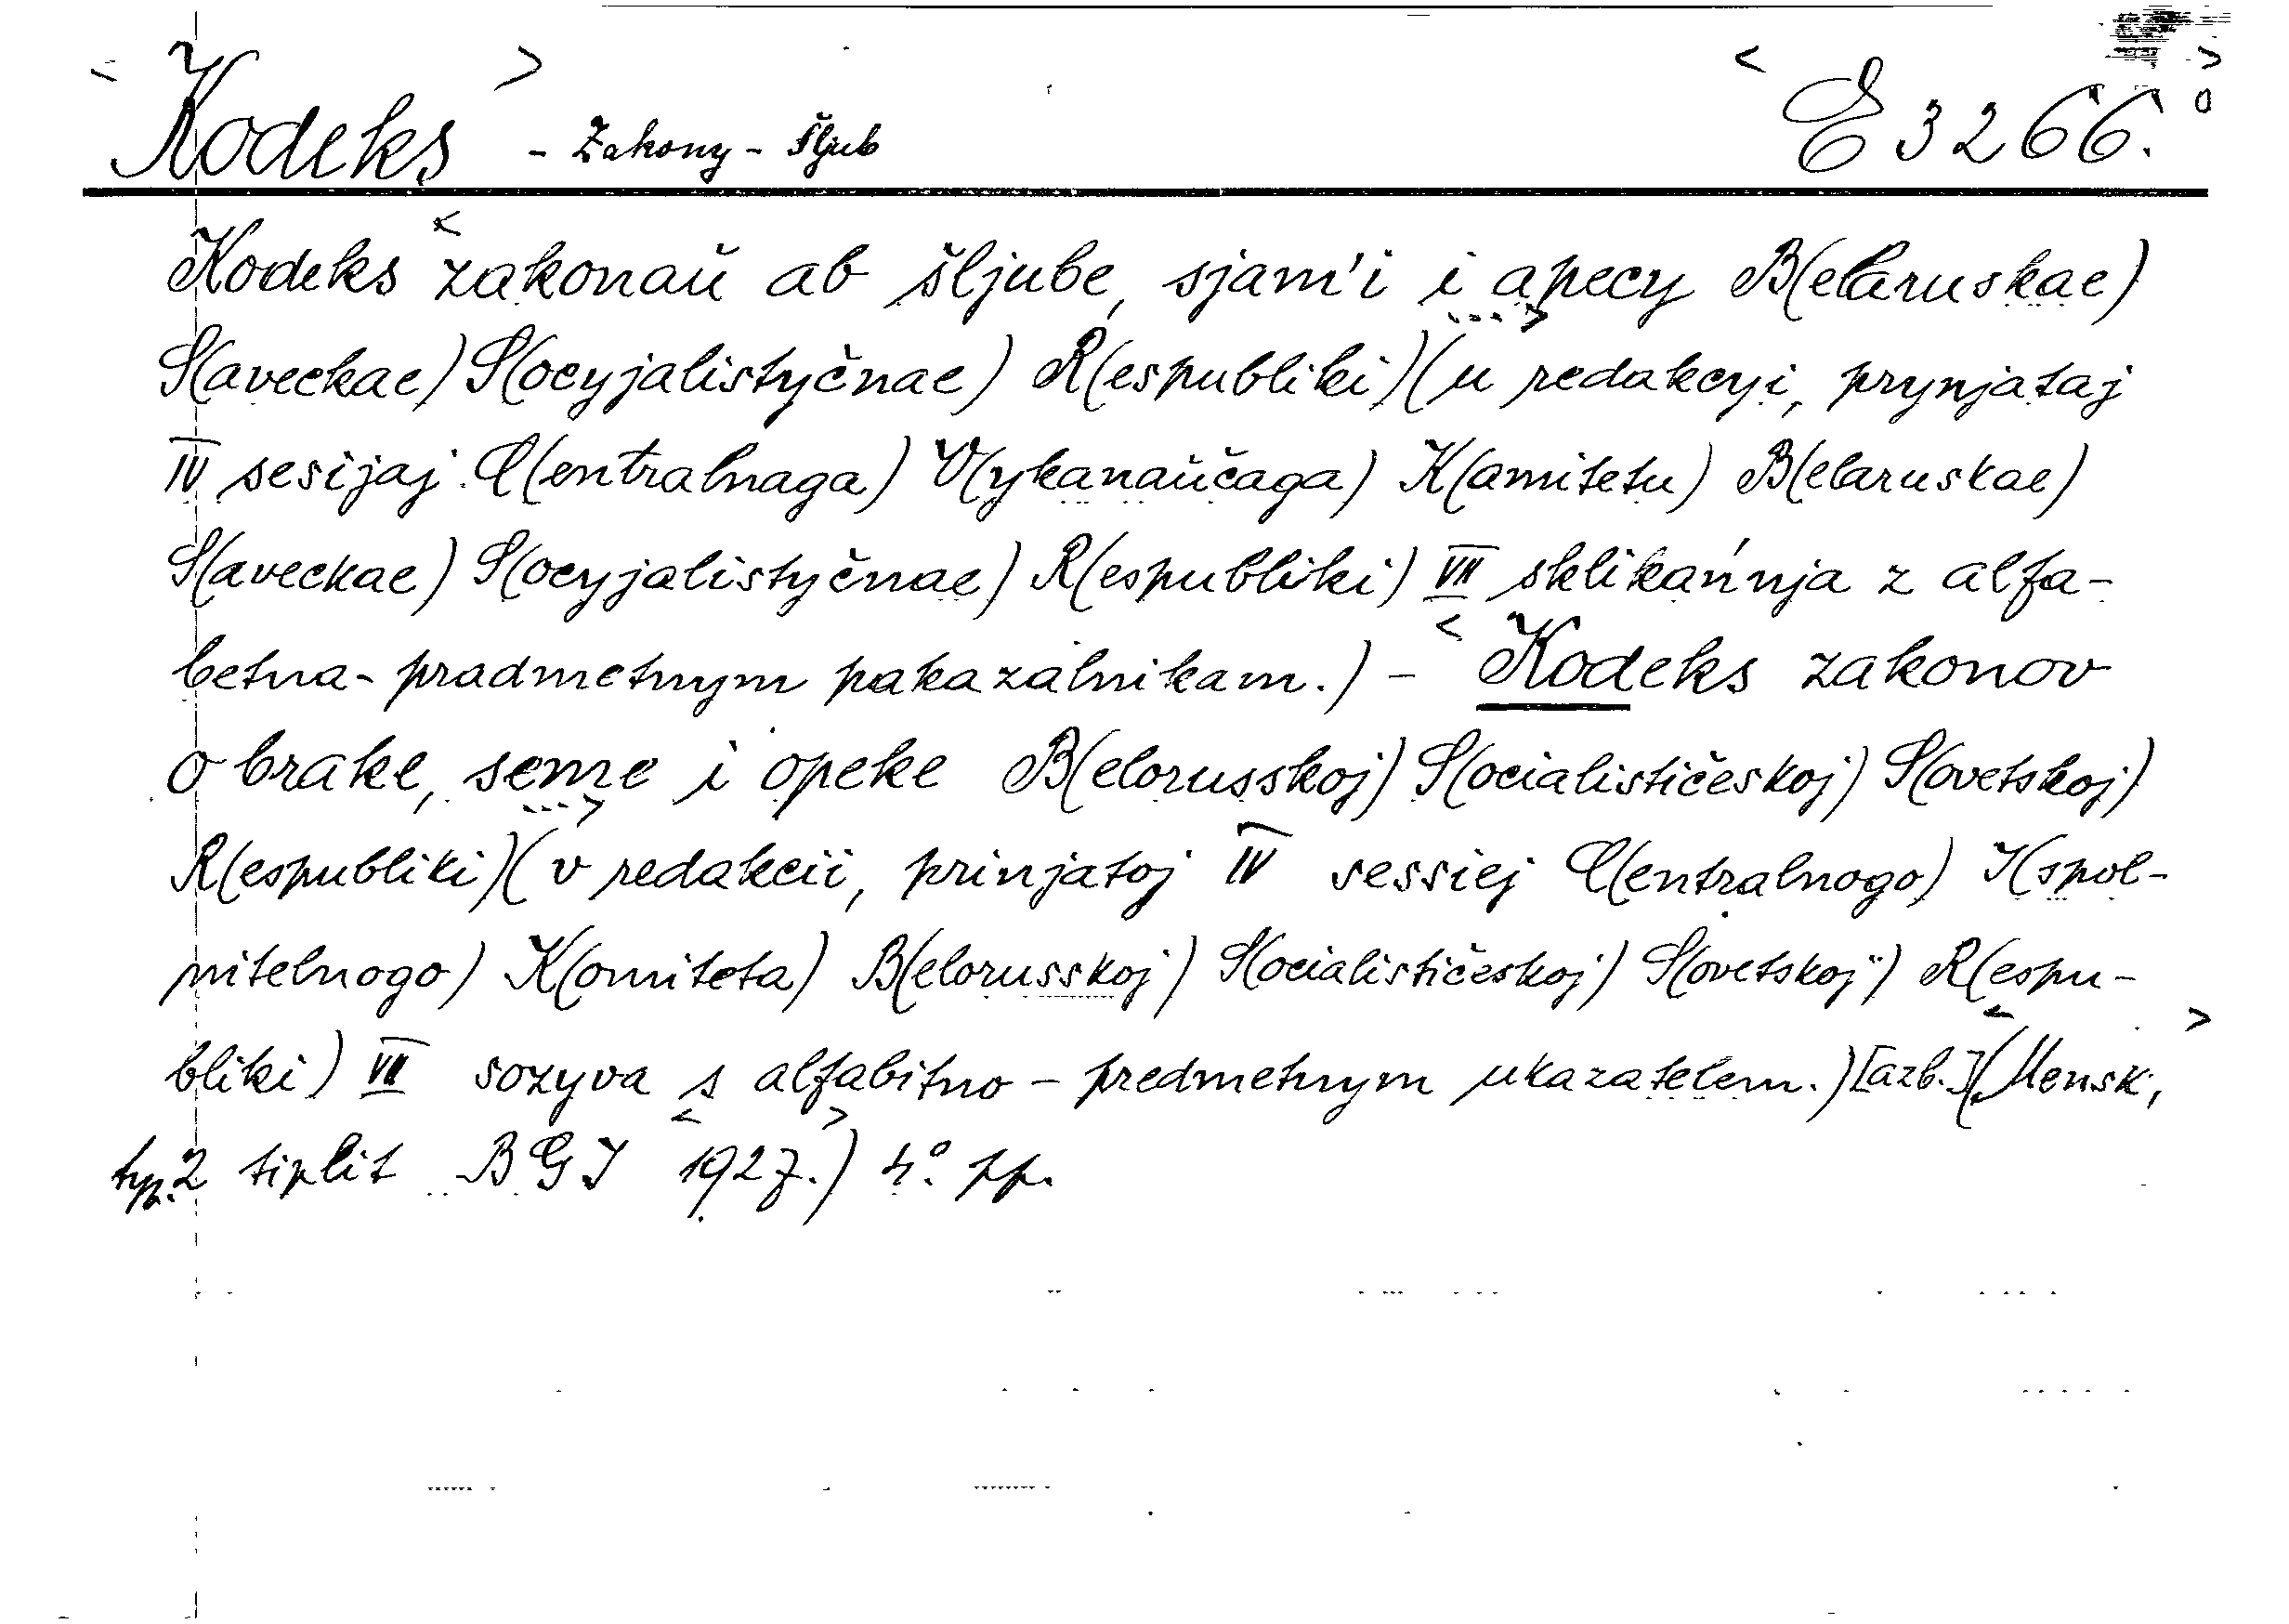 < Kodeks > - Zakony - šljub < E 3266.° >
Kodeks < zakonaŭ ab šljube, sjam'i i apecy B(elaruskae)
S(aveckae) S(ocyjalistyčnae) R(espubliki) ...> (u redakcyi, prynjataj
IV sesijaj C(entralnaga) V(ykanaŭčaga) K(amitetu) B(elaruskae)
S(aveckae) S(ocyjalistyčnae) R(espubliki) VII sklikańnja z alfa-
betna-pradmetnym pakazalnikam.) - < Kodeks zakonov
o brake, seme i opeke B(elorusskoj) S(ocialističeskoj) S(ovetskoj)
R(espubliki) ...> (v redakcii, prinjatoj IV sessiej C(entralnogo) I(spol-
nitelnogo) K(omiteta) B(elorusskoj) S(ocialističeskoj) S(ovetskoj) R(espu-
bliki) VII sozyva s alfabitno - predmetnym ukazatelem.) [azb.] (< Mensk, >
typ. 2 tiplit BGI < 1927. >) 4°. pp.